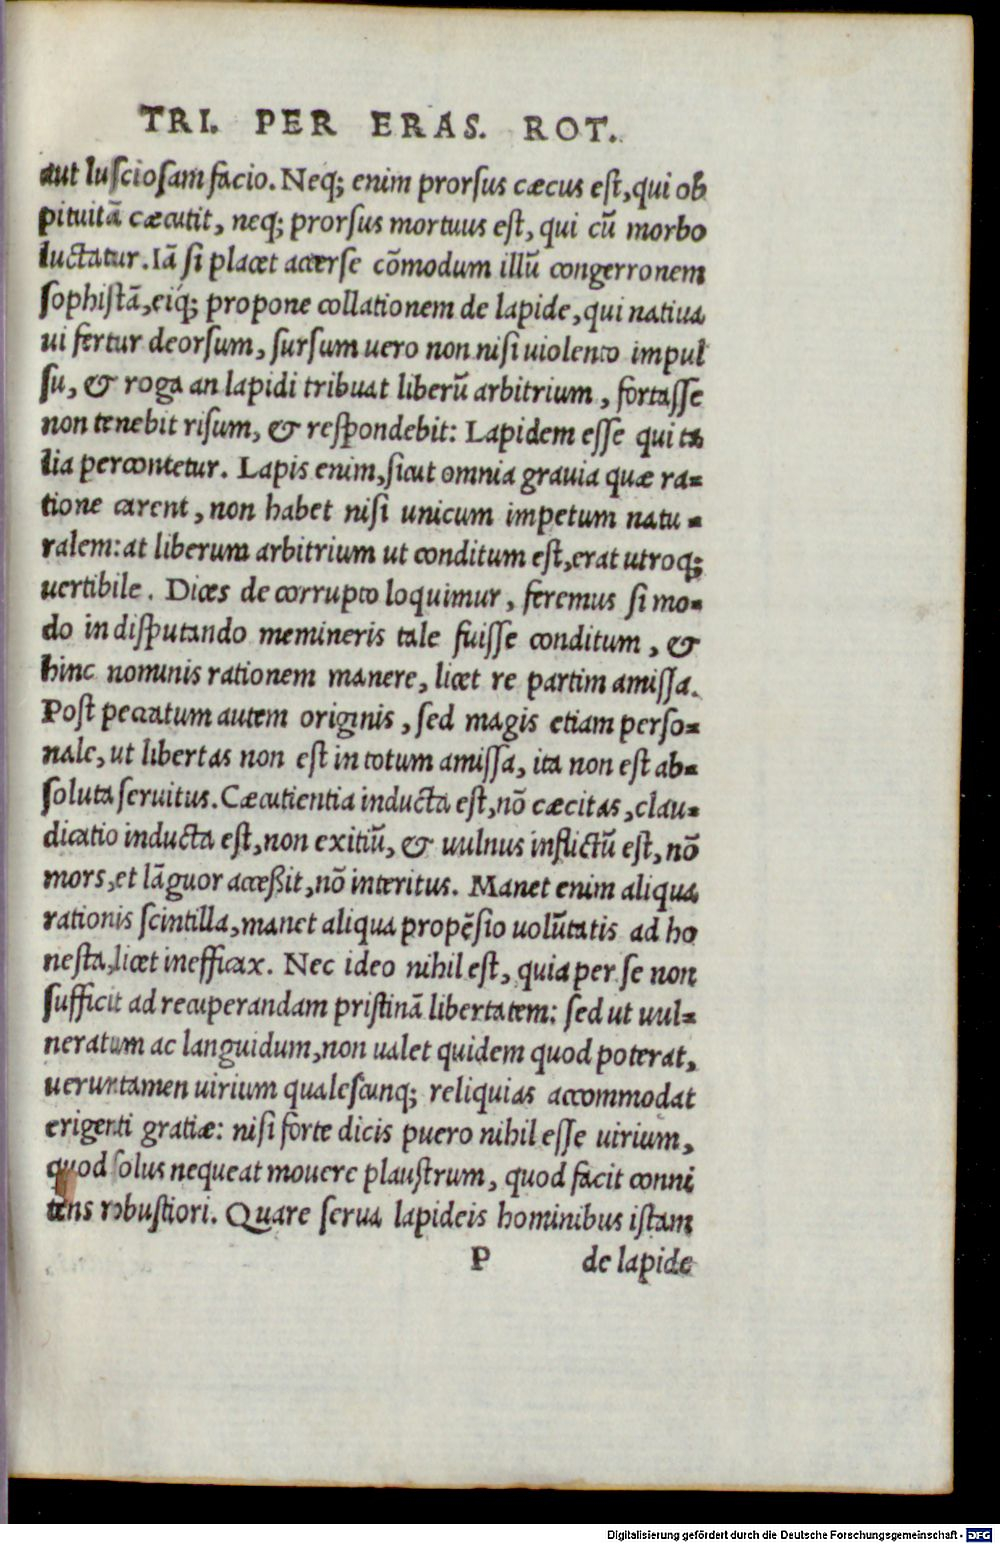 TRI. PER ERAS. ROT.
aut lusciosam facio. Neq; enim prorsus cæcus est, qui ob
pituitā cæcutit, neq; prorsus mortuus est, qui cū morbo
luctatur. Iā si placet accerse cōmodum illū congerronem
sophistā, eiq́; propone collationem de lapide, qui natiua
ui fertur deorsum, sursum uero non nisi uiolento impul
su, & roga an lapidi tribuat liberū arbitrium, fortasse
non tenebit risum, & respondebit: Lapidem esse qui ta
lia percontetur. Lapis enim, sicut omnia grauia quæ ra-
tione carent, non habet nisi unicum impetum natu-
ralem: at liberum arbitrium ut conditum est, erat utroq;
uertibile. Dices de corrupto loquimur, feremus si mo-
do in disputando memineris tale fuisse conditum, &
hinc nominis rationem manere, licet re partim amissa.
Post peccatum autem originis, sed magis etiam perso-
nale, ut libertas non est in totum amissa, ita non est ab-
soluta seruitus. Cæcutientia inducta est, nō cæcitas, clau-
dicatio inducta est, non exitiū, & uulnus inflictū est, nō
mors, et lāguor accessit, nō interitus. Manet enim aliqua
rationis scintilla, manet aliqua propēsio uolūtatis ad ho
nesta, licet inefficax. Nec ideo nihil est, quia per se non
sufficit ad recuperandam pristinā libertatem: sed ut uul-
neratum ac languidum, non ualet quidem quod poterat,
ueruntamen uirium qualescunq; reliquias accommodat
erigenti gratiæ: nisi forte dicis puero nihil esse uirium,
quod solus nequeat mouere plaustrum, quod facit conni
tens robustiori. Quare serua lapideis hominibus istam
P de lapide
Digitalisierung gefördert durch die Deutsche Forschungsgemeinschaft - DFG